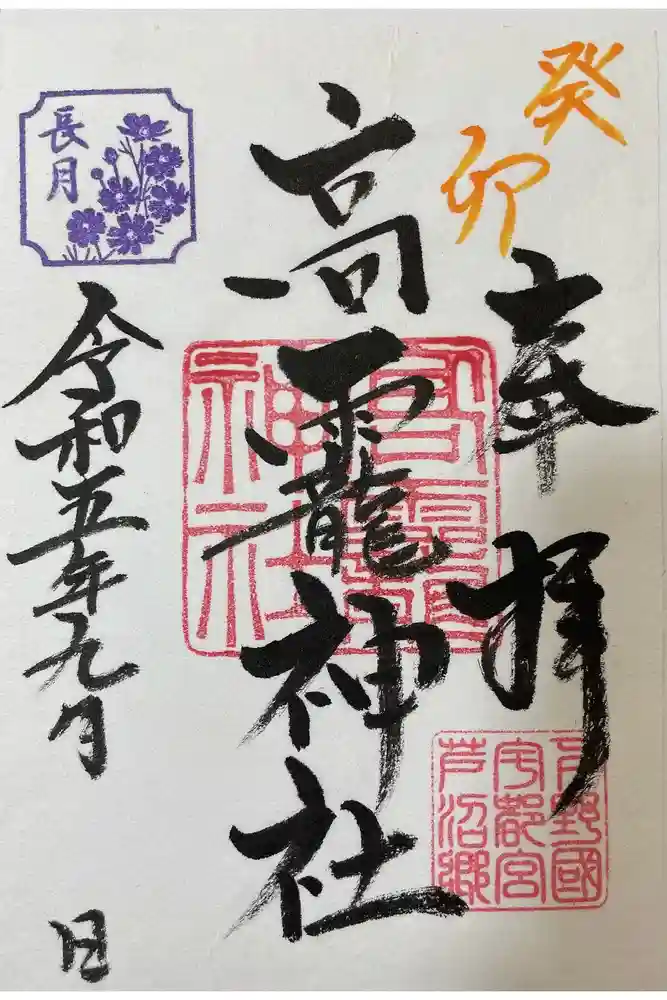 癸卯
奉拝
下野國
宇都宮
芦沼郷
高龗神社
高龗
神社
長月
令和五年九月 日